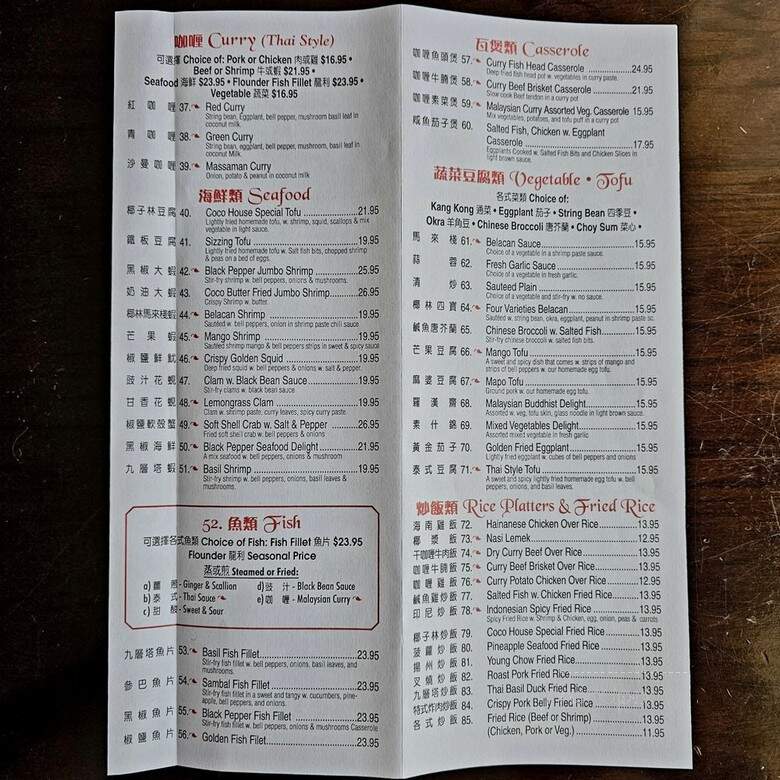 咖喱 Curry (Thai Style)
可選擇 Choice of: Pork or Chicken 肉或雞 $16.95 •
Beef or Shrimp 牛或蝦 $21.95 •
Seafood 海鮮 $23.95 • Flounder Fish Fillet 龍利 $23.95 •
Vegetable 蔬菜 $16.95
紅咖喱 37. Red Curry
String bean, Eggplant, bell pepper, mushroom basil leaf in
coconut milk.
青咖喱 38. Green Curry
String bean, eggplant, bell pepper, mushroom, basil leaf in
coconut milk.
沙曼咖喱 39. Massaman Curry
Onion, potato & peanut in coconut milk
海鮮類 Seafood
椰子林豆腐 40. Coco House Special Tofu 21.95
Lightly fried homemade tofu, w. shrimp, squid, scallops & mix
vegetable in light sauce.
鐵板豆腐 41. Sizzing Tofu 19.95
Lightly fried homemade tofu w. Salt fish bits, chopped shrimp
& peas on a bed of eggs.
黑椒大蝦 42. Black Pepper Jumbo Shrimp 25.95
Stir-fry shrimp w. bell peppers, onions & mushrooms.
奶油大蝦 43. Coco Butter Fried Jumbo Shrimp 26.95
Crispy Shrimp w. butter.
椰林馬來棧蝦 44. Belacan Shrimp 19.95
Sautéed w. bell peppers, onion in shrimp paste chili sauce
芒果蝦 45. Mango Shrimp 19.95
Sautéed shrimp mango & bell peppers strips in sweet & spicy sauce
椒鹽鮮魷 46. Crispy Golden Squid 19.95
Deep fried squid w. bell peppers & onions w. salt & pepper.
豉汁花蜆 47. Clam w. Black Bean Sauce 19.95
Stir-fry clams w. black bean sauce
甘香花蜆 48. Lemongrass Clam 19.95
Clam w. shrimp paste, curry leaves, spicy curry paste.
椒鹽軟殼蟹 49. Soft Shell Crab w. Salt & Pepper 26.95
Fried soft shell crab w. bell peppers & onions
黑椒海鮮 50. Black Pepper Seafood Delight 21.95
A mix seafood w. bell peppers, onions & mushroom
九層塔蝦 51. Basil Shrimp 19.95
Stir-fry shrimp w. bell peppers, onions, basil leaves &
mushrooms.
52. 魚類 Fish
可選擇各式魚類 Choice of Fish: Fish Fillet 魚片 $23.95
Flounder 龍利 Seasonal Price
蒸或煎 Steamed or Fried:
a) - Ginger & Scallion d) 豉汁 - Black Bean Sauce
b) 泰式 - Thai Sauce e) 咖喱 - Malaysian Curry
c) 甜酸 - Sweet & Sour
九層塔魚片 53. Basil Fish Fillet 23.95
Stir-fry fish fillet w. bell peppers, onions, basil leaves, and
mushrooms.
參巴魚片 54. Sambal Fish Fillet 23.95
Stir-fry fish fillet in a sweet and tangy w. cucumbers, pine-
apple, bell peppers, and onions.
黑椒魚片 55. Black Pepper Fish Fillet 23.95
Stir-fry fish fillet w. bell peppers, onions & mushrooms Casserole
椒鹽魚片 56. Golden Fish Filet 23.95
瓦煲類 Casserole
咖喱魚頭煲 57. Curry Fish Head Casserole 24.95
Deep fried fish head pot w. vegetables in curry paste.
咖喱牛腩煲 58. Curry Beef Brisket Casserole 21.95
Slow cook Beef tendon in a curry pot
咖喱素菜煲 59. Malaysian Curry Assorted Veg. Casserole 15.95
Mix vegetables, potatoes, and tofu puff in a curry pot
咸魚茄子煲 60. Salted Fish, Chicken w. Eggplant
Casserole 17.95
Eggplants Cooked w. Salted Fish Bits and Chicken Slices in
light brown sauce.
蔬菜豆腐類 Vegetable • Tofu
各式菜類 Choice of:
Kang Kong 通菜 • Eggplant 茄子 • String Bean 四季豆 •
Okra 羊角豆 • Chinese Broccoli 唐芥蘭 • Choy Sum 菜心 •
馬來棧 61. Belacan Sauce 15.95
Choice of a vegetable in a shrimp paste sauce.
蒜蓉 62. Fresh Garlic Sauce 15.95
Choice of a vegetable in fresh garlic.
清炒 63. Sauteed Plain 15.95
Choice of a vegetable and stir-fry w. no sauce.
椰林四寶 64. Four Varieties Belacan 15.95
Sautéed w. string bean, okra, eggplant, peanut in shrimp paste sc.
鹹魚唐芥蘭 65. Chinese Broccoli w. Salted Fish 15.95
Stir-fry chinese broccoli w. salted fish bits.
芒果豆腐 66. Mango Tofu 15.95
A sweet and spicy dish that comes w. strips of mango and
strips of bell peppers w. our homemade egg tofu.
麻婆豆腐 67. Mapo Tofu 15.95
Ground pork w. our homemade egg tofu.
羅漢齋 68. Malaysian Buddhist Delight 15.95
Assorted w. veg, tofu skin, glass noodle in light brown sauce.
素什錦 69. Mixed Vegetables Delight 15.95
Assorted mixed vegetable in fresh garlic
黃金茄子 70. Golden Fried Eggplant 15.95
Lightly fried eggplant w. cubes of bell peppers and onions
泰式豆腐 71. Thai Style Tofu 15.95
A sweet and spicy lightly fried homemade egg tofu w. bell
peppers, onions, and basil leaves.
炒飯類 Rice Platters & Fried Rice
海南雞飯 72. Hainanese Chicken Over Rice 13.95
椰漿飯 73. Nasi Lemek 12.95
干咖喱牛肉飯 74. Dry Curry Beef Over Rice 13.95
咖喱牛腩飯 75. Curry Beef Brisket Over Rice 13.95
咖喱雞飯 76. Curry Potato Chicken Over Rice 12.95
鹹魚雞炒飯 77. Salted Fish w. Chicken Fried Rice 13.95
印尼炒飯 78. Indonesian Spicy Fried Rice 13.95
Spicy Fried Rice w. Shrimp & Chicken, egg, onion, peas & carrots
椰子林炒飯 79. Coco House Special Fried Rice 13.95
菠蘿炒飯 80. Pineapple Seafood Fried Rice 13.95
揚州炒飯 81. Young Chow Fried Rice 13.95
叉燒炒飯 82. Roast Pork Fried Rice 13.95
九層塔炒飯 83. Thai Basil Duck Fried Rice 13.95
特式炸肉炒飯 84. Crispy Pork Belly Fried Rice 13.95
各式炒飯 85. Fried Rice (Beef or Shrimp) 13.95
(Chicken, Pork or Veg.) 11.95